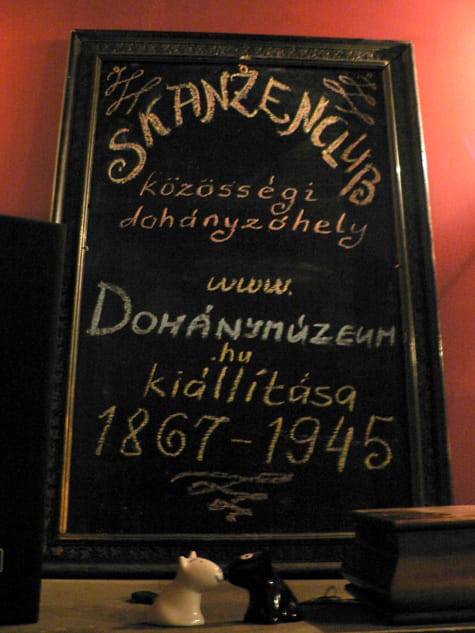 SKANZENCLUB
közösségi
dohányzóhely
www.
DOHÁNYMÚZEUM
.hu
kiállítása
1867-1945